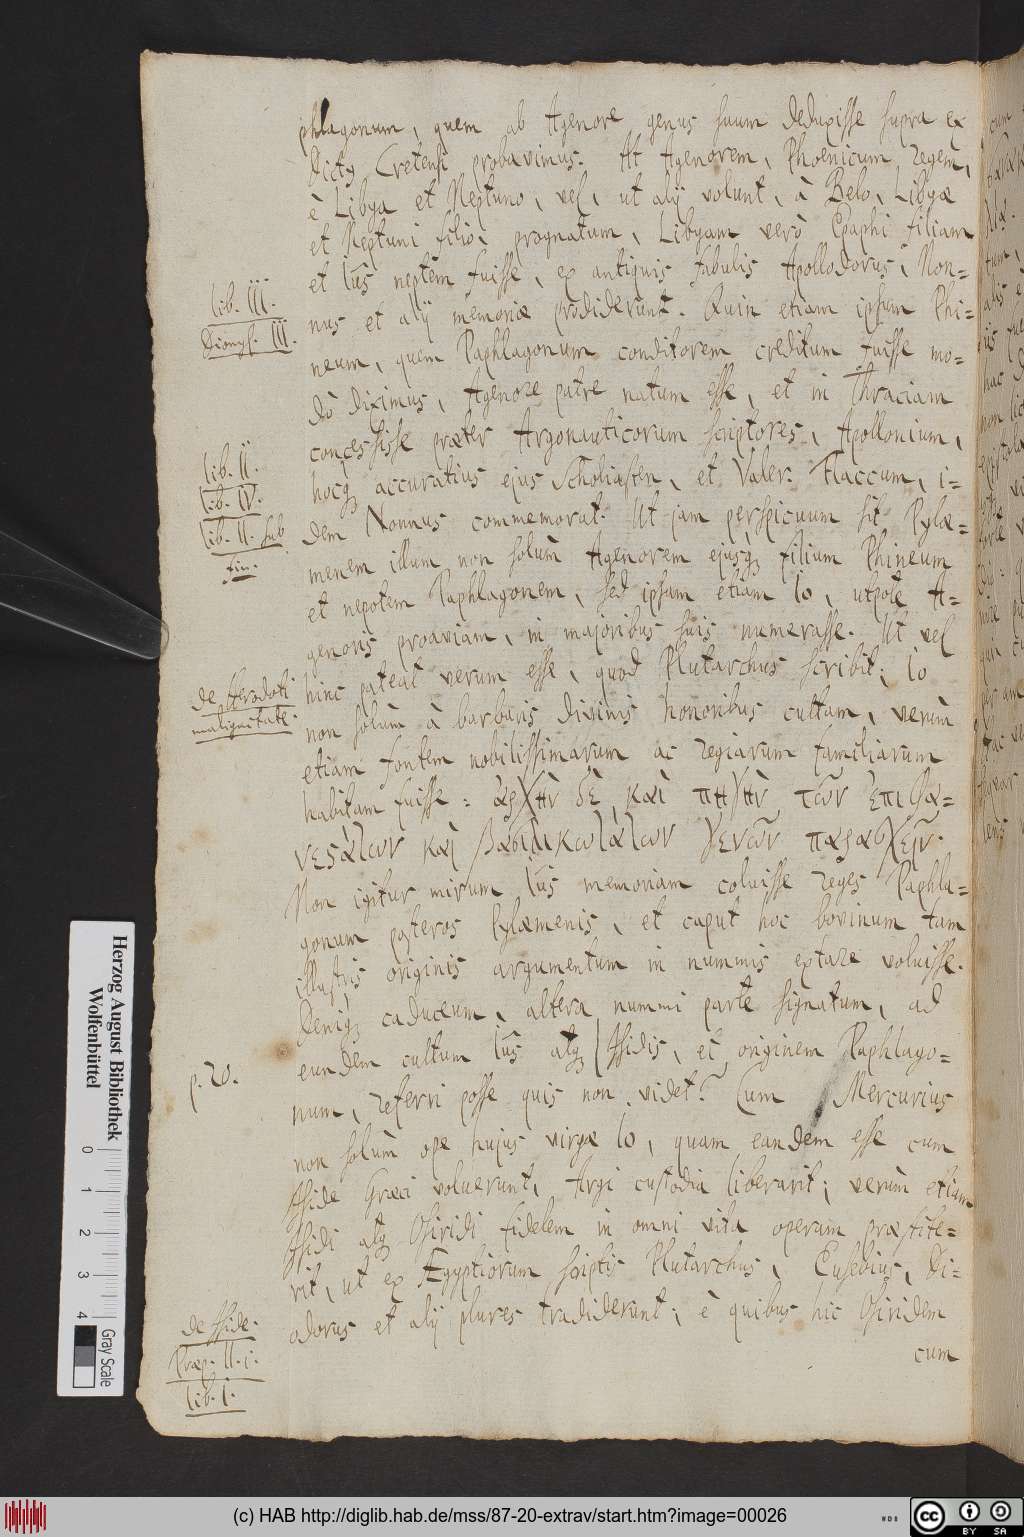 phlagonum, quem ab Agenore genus suum deduxisse supra ex
Dicty Cretensi probavimus. At Agenorem, Phoenicum regem,
è Libya et Neptuno, vel, ut alij volunt, à Belo, Libyæ
et Neptuni filio, prognatum, Libyam verò Epaphi filiam
et Iûs neptem fuisse, ex antiquis fabulis Apollodorus, Non=
lib. III.
nus et alij memoriæ prodiderunt. Quin etiam ipsum Phi=
Dionys. III.
neum, quem Paphlagonum conditorem creditum fuisse mo=
dò diximus, Agenore patre natum esse, et in Thraciam
concessisse præter Argonauticorum scriptores, Apollonium,
lib. II.
hocq accuratius ejus Scholiasten, et Valer. Flaccum, i=
lib. IV.
lib. II. sub
fin.
dem Nonnus commemorat. Ut jam perspicuum sit Pylæ=
menem illum non solùm Agenorem ejusq filium Phineum
et nepotem Paphlagonem, sed ipsam etiam Io, utpote A=
genoris proaviam, in majoribus suis numerasse. Ut vel
hinc pateat verum esse, quod Plutarchus scribit; Io
de Herodoti
malignitate.
non solùm à barbaris divinis honoribus cultam, verùm
etiam fontem nobilissimarum ac regiarum familiarum
habitam fuisse: ἀρχὴν δὲ καὶ πηγὴν τῶν ἐπιφα=
νεςάτων καὶ βασιλικωτάτων γενῶν παρασχεῖν.
Non igitur mirum Iûs memoriam coluisse reges Paphla=
gonum posteros Pylæmenis, et caput hoc bovinum tam
illustris originis argumentum in nummis extare voluisse.
Deniq caduceum, altera nummi parte signatum, ad
eundem cultum Iûs atq Isidis, et originem Paphlago=
p. 20.
num, referri posse quis non videt? Cum Mercurius
non solùm ope hujus virgæ Io, quam eandem esse cum
Iside Græci voluerunt, Argi custodia liberarit; verùm etiam
Isidi atq Osiridi fidelem in omni vita operam præstite=
rit, ut ex Ægyptiorum scriptis Plutarchus, Eusebius, Di=
odorus et alij plures tradiderunt; è quibus hic Osiridem
de Iside.
Præp. II. i.
lib. I.
cum
Herzog August Bibliothek
Wolfenbüttel
0 1 2 3 4
Gray Scale
(c) HAB http://diglib.hab.de/mss/87-20-extrav/start.htm?image=00026
cc BY SA